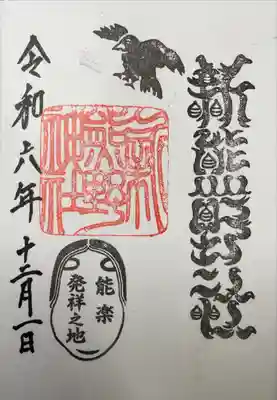 新熊野神社
能楽
発祥之地
令和六年十二月一日